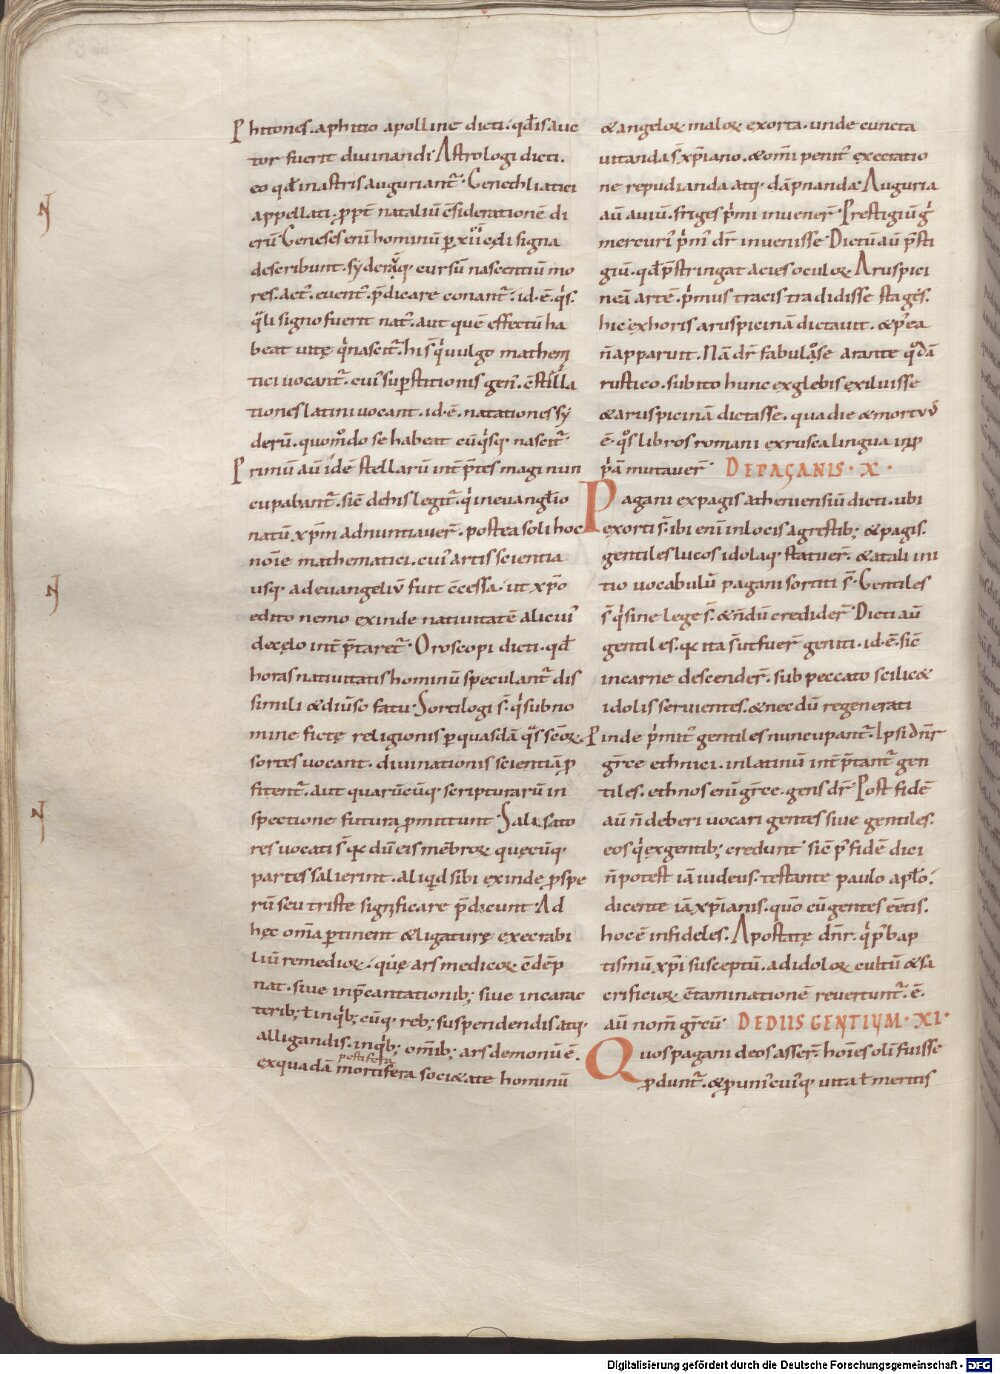 Phitones. aphitio apolline dicti. qđ is auc
tor fuerit divinandi Astrologi dicti.
eo qđ in astris auguriant̄. Genethliatici
appellati. ꝓpt̄ nataliū c̄sideratione di
erū Geneses enī hominū ꝑ xii cęli signa
describunt. syderūq; cursū nascentiū mo
res. act'. event'. p̄dicare conant̄. id. ē. q̇s.
q̇li signo fuerit nat'. aut quē effectū ha
beat vitę q̇ nascit̄. hi s̄ q̇ vulgo mathem
tici vocant̄. cui' suꝑstitionis gen'. c̄stilla
tiones latini vocant. id. ē. natationes sy
derū. quomodo se habeat cū q̇sq; nascit̄.
Primū aū idē stellarū int̄p̄tes magi nun
cupabant̄. sic̄ de his legit̄. q̇ in evanglio
natū xp̄m adnuntiaver̄. postea soli hoc
noīe mathematici. cui' artis scientia
usq; ad evangeliū fuit c̄cessa. ut xp̄o
edito nemo exinde nativitatē alicui'
de cęlo int̄p̄taret̄. Oroscopi dicti. qđ
horas nativitatis hominū speculant̄ dis
simili & div̄so fatu. Sortilogi s̄. q̇ sub no
mine fictę religionis ꝑ quasdā q̇s sc̄oꝝ
sortes vocant. divinationis scientiā ꝓ
fitent̄. aut quarūcūq; scripturarū in
spectione futura ꝓmittunt. Salisato
res vocati s̄. qc dū eis mēbroꝝ quęcūq;
partes salierint. aliqid sibi exinde ꝓspe
rū seu triste significare p̄dicunt. Ad
hęc om̄a ꝑtinent & ligaturę execrabi
liū remedioꝝ. quę ars medicoꝝ c̄dēp
nat. sive in p̄cantationib; sive in carac
terib; ł in q̇b; cūq; reb; suspendendis atq;
alligandis. in q̇b; om̄ib; ars demonū ē.
pestifera
ex quadā mortifera societate hominū
& angeloꝝ maloꝝ exorta. unde cuncta
vitanda s̄ xp̄iano. & om̄i penit' execratio
ne repudianda atq; dāpnanda. Auguria
aū aviū. friges p̄mi invener̄. Prestigiū q̇
mercuri' p̄m' dr̄ invenisse. Dictū aū p̄sti
giū. qđ p̄stringat acies oculoꝝ. Aruspici
neā artē. p̄mus tracis tradidisse stages.
hic ex horis aruspicinā dictavit. & p'ea
n̄ apparuit. Nā dr̄ fabulose arante qodā
rustico. subito hunc ex glebis exiluisse
& aruspicinā dictasse. qua die & mortuu
ē. qos libros romani ex rusca lingua in ꝓp
p̄ā mutaver̄. DE PAGANIS. X.
Pagani ex pagis atheniensiū dicti. ubi
exorti s̄. ibi enī in locis agrestib; & pagis.
gentiles lucos idolaq; statuer̄. & a tali ini
tio vocabulū pagani sortiti s̄. Gentiles
s̄ q̇ sine lege s̄. & n̄dū credider̄. Dicti aū
gentiles. qc ita s̄ ut fuer̄ geniti. id. ē. sic̄
in carne descender̄. sub peccato scilic&
idolis servientes. & necdū regenerati
Pinde p̄mit' gentiles nuncupant̄. Ipsi dn̄r
gr̄ce ethnici. in latinū int̄p̄tant̄ gen
tiles. ethnos enī gr̄ce. gens dr̄. Post fidē
aū n̄ deberi vocari gentes sive gentiles.
eos q̇ ex gentib; credunt. sic̄ p' fidē dici
n̄ potest iā iudeus. testante paulo aplo.
dicente iā xp̄ianis. quō cū gentes eētis.
hoc ē infideles. Apostatę dn̄r. q̇ p' bap
tismū xp̄i susceptū. ad idoloꝝ cultū & sa
crificioꝝ c̄taminationē revertunt̄. ē.
aū nom̄ gr̄cū. DE DIIS GENTIUM. XI.
Quos pagani deos asser̄. hoīes olī fuisse
ꝓdunt̄. & ꝑ uni'cui'q; vita ł meritis
Digitalisierung gefördert durch die Deutsche Forschungsgemeinschaft - DFG